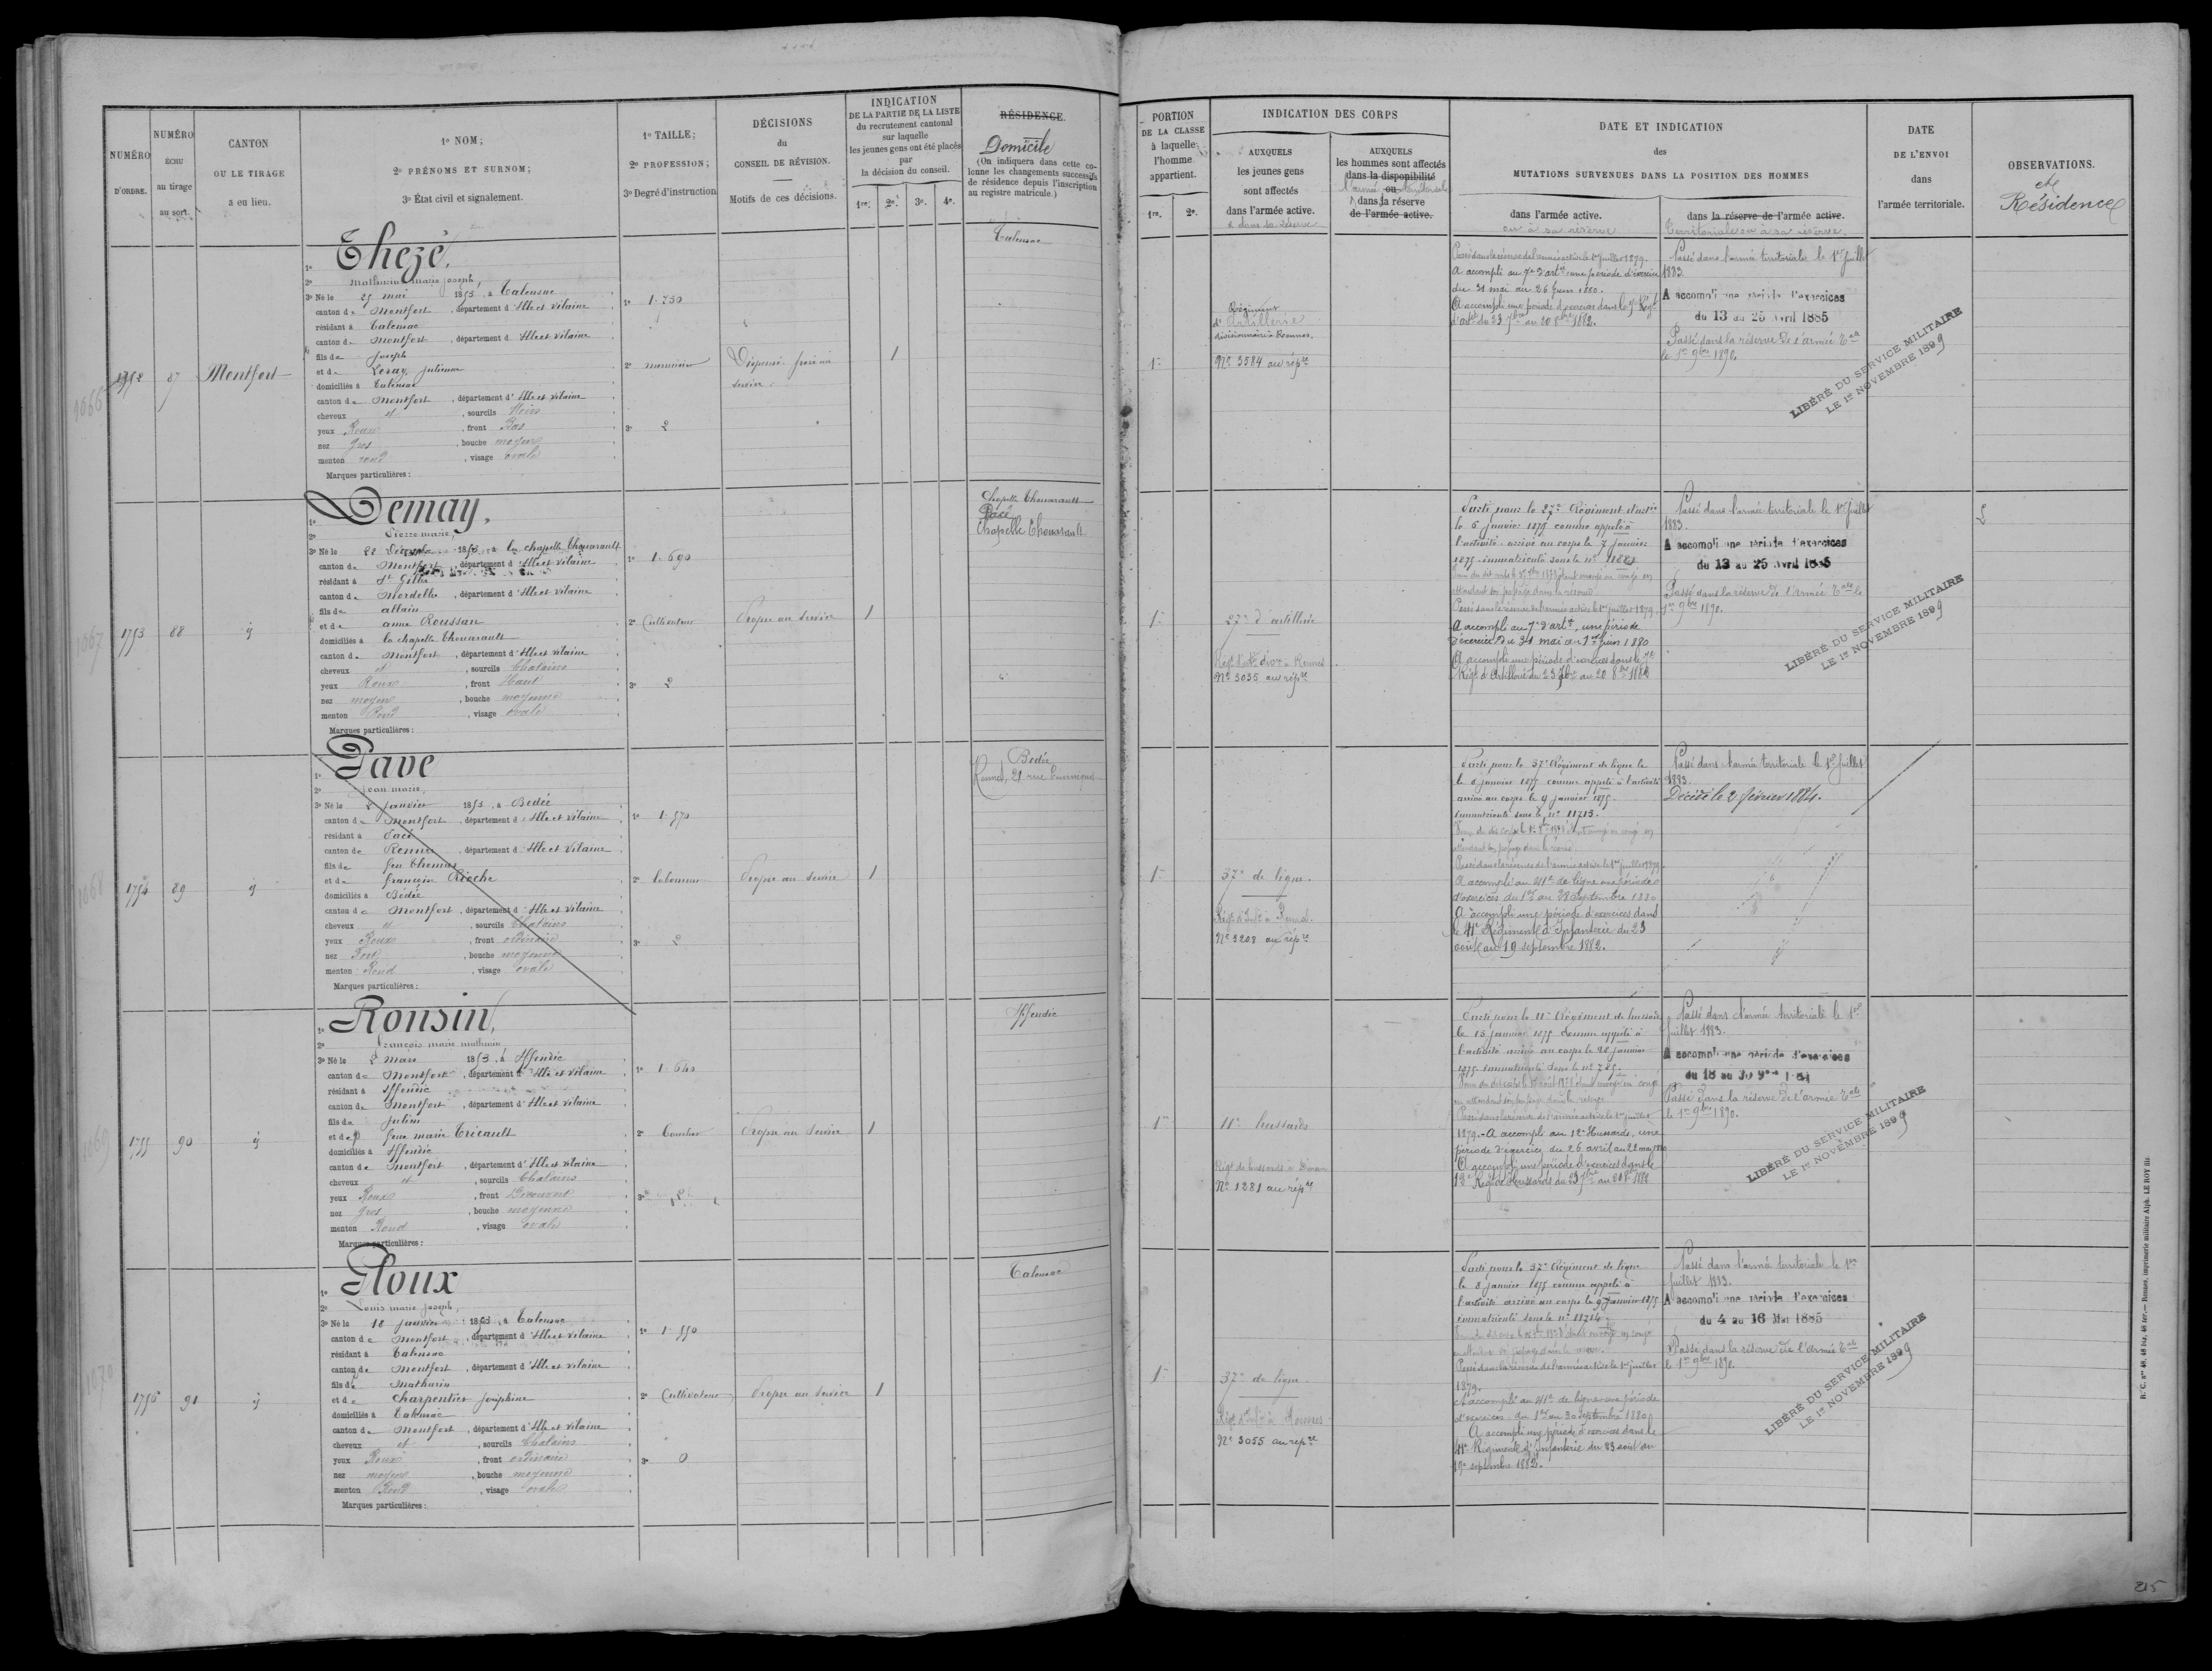 NUMÉRO D'ORDRE.
NUMÉRO ÉCHU au tirage au sort.
CANTON OU LE TIRAGE a eu lieu.
1º NOM;
2º PRÉNOMS ET SURNOM;
3º État civil et signalement.
1º TAILLE;
2º PROFESSION;
3º Degré d'instruction
DÉCISIONS du CONSEIL DE RÉVISION.
Motifs de ces décisions.
INDICATION DE LA PARTIE DE LA LISTE du recrutement cantonal sur laquelle les jeunes gens ont été placés par la décision du conseil.
1re. 2e. 3e. 4e.
RÉSIDENCE.
Domicile
(On indiquera dans cette colonne les changements successifs de résidence depuis l'inscription au registre matricule.)
PORTION DE LA CLASSE à laquelle l'homme appartient.
1re. 2e.
INDICATION DES CORPS
AUXQUELS les jeunes gens sont affectés dans l'armée active.
& dans sa réserve
AUXQUELS les hommes sont affectés dans la disponibilité ou dans la réserve de l'armée active.
l'armée territoriale
DATE ET INDICATION des MUTATIONS SURVENUES DANS LA POSITION DES HOMMES
dans l'armée active.
ou à sa réserve
dans la réserve de l'armée active.
Territoriale ou à sa réserve.
DATE DE L'ENVOI dans l'armée territoriale.
OBSERVATIONS.
et Résidence
1066
1752
87
Montfort
1º Thezé,
2º Mathurin marie joseph,
3º Né le 25 mai 1853, à Talensac
canton de Montfort, département d'Ille et Vilaine
résidant à Talensac
canton de Montfort, département d'Ille et Vilaine
fils de Joseph
et de Leray, Julienne
domiciliés à Talensac
canton de Montfort, département d'Ille et Vilaine
cheveux et, sourcils Noirs
yeux Roux, front Bas
nez Gros, bouche moyenne
menton rond, visage ovale
Marques particulières :
1º 1.730
2º menuisier
3º 2
Dispensé frère au service
1
Talensac
1re
Régiment d'Artillerie divisionnaire à Rennes.
Nº 3584 au rép.re
Passé dans la réserve de l'armée active le 1er Juillet 1879.
A accompli au 7e d'art.ie une période d'exercices
du 31 mai au 26 Juin 1880.
A accompli une période d'exercices dans le 7e Régt
d'art.ie du 23 7bre au 20 8bre 1882.
Passé dans l'armée territoriale le 1er Juillet
1883.
A accompli une période d'exercices
du 13 au 25 Avril 1885
Passé dans la réserve de l'armée T.ale
le 1er 9bre 1890.
LIBÉRÉ DU SERVICE MILITAIRE
LE 1er NOVEMBRE 1899
1067
1753
88
id
1º Demay,
2º Pierre marie,
3º Né le 22 Décembre 1853, à La chapelle Thouarault
canton de Montfort, département d'Ille et Vilaine
résidant à St Gilles
canton de Mordelles, département d'Ille et Vilaine
fils de allain
et de anne Roussan
domiciliés à La chapelle Thouarault
canton de Montfort, département d'Ille et Vilaine
cheveux et, sourcils Chatains
yeux Roux, front Haut
nez moyen, bouche moyenne
menton Rond, visage ovale
Marques particulières :
1º 1.690
2º Cultivateur
3º 2
Propre au Service
1
Chapelle Thouarault
Pacé
Chapelle Thouarault
1re
27e d'artillerie
Régt d'art.ie div.re à Rennes
Nº 3035 au rép.re
Parti pour le 27e Régiment d'art.ie
le 6 janvier 1875 comme appelé à
l'activité arrivé au corps le 7 janvier
1875 immatriculé sous le nº
Passé dans la réserve de l'armée active le 1er juillet 1879.
A accompli au 7e d'art.ie, une période
d'exercices du 31 mai au Juin 1880
A accompli une période d'exercices dans le 7e
Régt d'Artillerie du 23 7bre au 20 8bre 1882
Passé dans l'armée territoriale le 1er Juillet
1883.
A accompli une période d'exercices
du 13 au 25 Avril 1885
Passé dans la réserve de l'armée T.ale le
1er 9bre 1890.
LIBÉRÉ DU SERVICE MILITAIRE
LE 1er NOVEMBRE 1899
1068
1754
89
id
1º Pave
2º Jean marie,
3º Né le 2 janvier 1853, à Bedée
canton de Montfort, département d'Ille et Vilaine
résidant à Pacé
canton de Rennes, département d'Ille et Vilaine
fils de feu Thomas
et de françoise Rioche
domiciliés à Bédée
canton de Montfort, département d'Ille et Vilaine
cheveux et, sourcils Chatains
yeux Roux, front ordinaire
nez Fort, bouche moyenne
menton Rond, visage ovale
Marques particulières :
1º 1.570
2º laboureur
3º 2
Propre au Service
1
Bedée
Rennes, 21 rue
1re
37e de ligne.
Régt d'Inf.ie à Rennes.
Nº 3208 au rép.re
Parti pour le 37e Régiment de ligne le
le 8 janvier 1875 comme appelé à l'activité
arrivé au corps le 9 janvier 1875.
immatriculé sous le nº 11713.
Passé dans la réserve de l'armée active le 1er juillet 1879
A accompli au 41e de ligne une période
d'exercices du 1er au 28 Septembre 1880
A accompli une période d'exercices dans
le 41e Régiment d'Infanterie du 23
août au 19 septembre 1882.
Passé dans l'armée territoriale le 1er Juillet
1883.
Décédé le 2 février 1884.
1069
1755
90
id
1º Ronsin,
2º François marie mathurin
3º Né le 2 Mars 1853, à Iffendic
canton de Montfort, département d'Ille et Vilaine
résidant à Iffendic
canton de Montfort, département d'Ille et Vilaine
fils de Julien
et de feue marie Tricault
domiciliés à Iffendic
canton de Montfort, département d'Ille et Vilaine
cheveux et, sourcils Chatains
yeux Roux, front Découvert
nez Gros, bouche moyenne
menton Rond, visage ovale
Marques particulières :
1º 1.640
2º
3º 2
Propre au Service
1
Iffendic
1re
11e hussards
Régt de hussards à Dinan
Nº 1281 au rép.re
Parti pour le 11e Régiment de hussards
le 15 janvier 1875 comme appelé à
l'activité arrivé au corps le 28 janvier
1875 immatriculé sous le nº 785.
Passé dans la réserve de l'armée active le 1er juillet
1879. A accompli au 12e Hussards, une
période d'exercices du 26 avril au 22 mai 1880
A accompli une période d'exercices dans le
12e Régt de Hussards du 23 7bre au 20 8bre 1882
Passé dans l'armée territoriale le 1er
Juillet 1883.
A accompli une période d'exercices
du 18 au 30
Passé dans la réserve de l'armée T.ale
le 1er 9bre 1890.
LIBÉRÉ DU SERVICE MILITAIRE
LE 1er NOVEMBRE 1899
1070
1756
91
id
1º Ploux
2º Louis marie joseph,
3º Né le 18 janvier 1853, à Talensac
canton de Montfort, département d'Ille et Vilaine
résidant à Talensac
canton de Montfort, département d'Ille et Vilaine
fils de Mathurin
et de Charpentier Joséphine
domiciliés à Talensac
canton de Montfort, département d'Ille et Vilaine
cheveux et, sourcils Chatains
yeux Roux, front ordinaire
nez moyen, bouche moyenne
menton Rond, visage ovale
Marques particulières :
1º 1.550
2º Cultivateur
3º 0
Propre au Service
1
Talensac
1re
37e de ligne
Régt d'Inf.ie à Rennes
Nº 3055 au rép.re
Parti pour le 37e Régiment de ligne
le 8 janvier 1875 comme appelé à
l'activité arrivé au corps le 9 Janvier 1875
immatriculé sous le nº 11714
Passé dans la réserve de l'armée active le 1er juillet
1879.
A accompli au 41e de ligne une période
d'exercices du 1er au 30 septembre 1880
A accompli une période d'exercices dans le
41e Régiment d'Infanterie du 23 août au
19 septembre 1882.
Passé dans l'armée territoriale le 1er
Juillet 1883.
A accompli une période d'exercices
du 4 au 16 Mai 1885
Passé dans la réserve de l'armée T.ale
le 1er 9bre 1890.
LIBÉRÉ DU SERVICE MILITAIRE
LE 1er NOVEMBRE 1899
R. C. nos 48, 48 bis, 48 ter.— Rennes, imprimerie militaire Alph. LE ROY fils
215